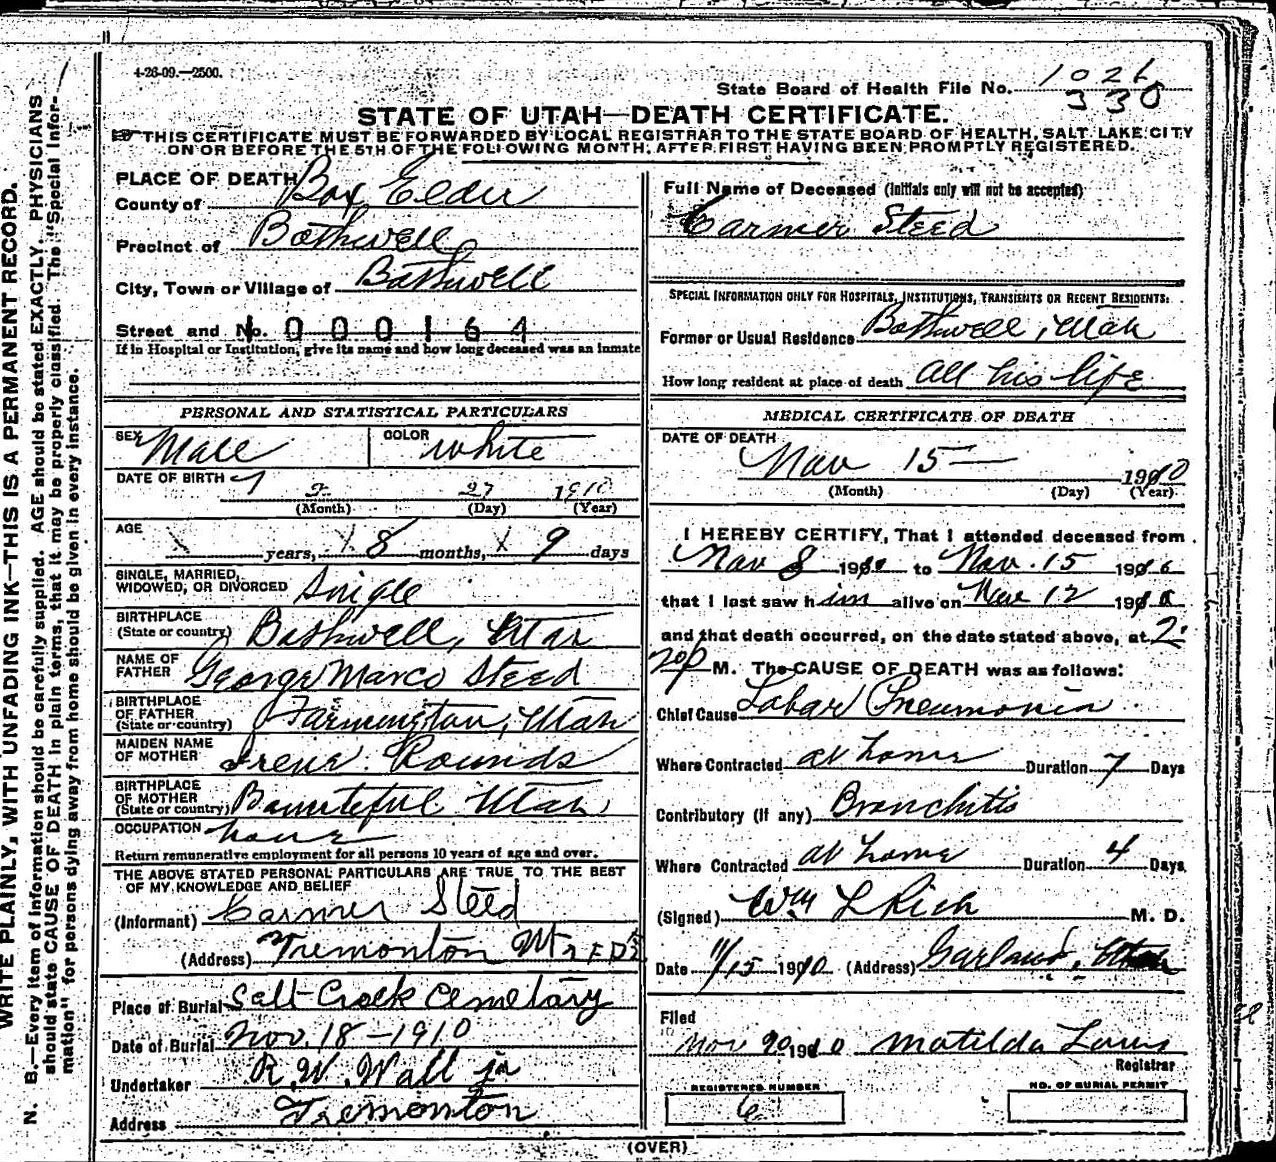 4-26-09.—2500.
State Board of Health File No. 1026
330
STATE OF UTAH—DEATH CERTIFICATE.
THIS CERTIFICATE MUST BE FORWARDED BY LOCAL REGISTRAR TO THE STATE BOARD OF HEALTH, SALT LAKE CITY
ON OR BEFORE THE 5TH OF THE FOLLOWING MONTH, AFTER FIRST HAVING BEEN PROMPTLY REGISTERED.
PLACE OF DEATH
County of Box Elder
Precinct of Bothwell
City, Town or Village of Bothwell
Street and No. 1000164
If in Hospital or Institution, give its name and how long deceased was an inmate
PERSONAL AND STATISTICAL PARTICULARS
SEX Male COLOR White
DATE OF BIRTH 2 27 1910
(Month) (Day) (Year)
AGE years, 8 months, 9 days
SINGLE, MARRIED,
WIDOWED, OR DIVORCED Single
BIRTHPLACE
(State or country) Bothwell, Utah
NAME OF
FATHER George Marco Steed
BIRTHPLACE
OF FATHER
(State or country) Farmington, Utah
MAIDEN NAME
OF MOTHER Irene Rounds
BIRTHPLACE
OF MOTHER
(State or country) Bounteful Utah
OCCUPATION none
Return remunerative employment for all persons 10 years of age and over.
THE ABOVE STATED PERSONAL PARTICULARS ARE TRUE TO THE BEST
OF MY KNOWLEDGE AND BELIEF
(Informant) Carmer Steed
(Address) Tremonton
Place of Burial Salt Creek Cemetary
Date of Burial Nov. 18-1910
Undertaker R. W. Wall jr
Address Tremonton
Full Name of Deceased (Initials only will not be accepted)
Carmer Steed
SPECIAL INFORMATION ONLY FOR HOSPITALS, INSTITUTIONS, TRANSIENTS OR RECENT RESIDENTS:
Former or Usual Residence Bothwell, Utah
How long resident at place of death all his life
MEDICAL CERTIFICATE OF DEATH
DATE OF DEATH
Nov 15 1910
(Month) (Day) (Year)
I HEREBY CERTIFY, That I attended deceased from
Nov 8 1910 to Nov. 15 1910
that I last saw him alive on Nov 12 1910
and that death occurred, on the date stated above, at 2:
20 P M. The CAUSE OF DEATH was as follows:
Chief Cause Lobar Pneumonia
Where Contracted at home Duration 7 Days
Contributory (if any) Bronchitis
Where Contracted at home Duration 4 Days
(Signed) Wm L Rich M. D.
Date 11/15 1910 (Address) Garland, Utah
Filed
Nov 20 1910 Matilda Lewis
Registrar
REGISTERED NUMBER
6
NO. OF BURIAL PERMIT
(OVER)
WRITE PLAINLY, WITH UNFADING INK—THIS IS A PERMANENT RECORD.
N. B.—Every item of information should be carefully supplied. AGE should be stated EXACTLY. PHYSICIANS
should state CAUSE OF DEATH in plain terms, that it may be properly classified. The "Special Infor-
mation" for persons dying away from home should be given in every instance.